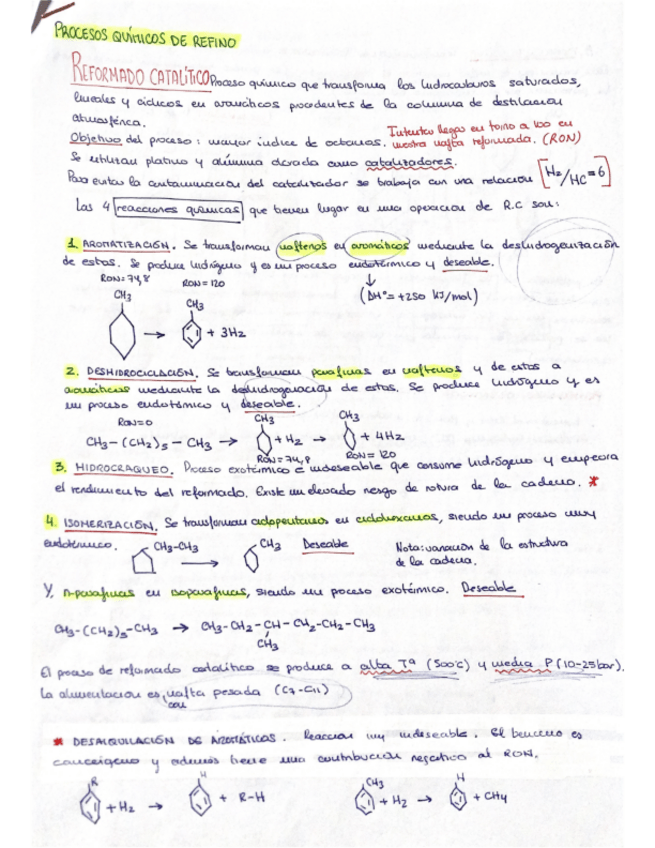 PROCESOS QUÍMICOS DE REFINO
REFORMADO CATALÍTICO Proceso químico que transforma los hidrocarburos saturados,
lineales y cíclicos en aromáticos procedentes de la columna de destilación
atmosférica.
Objetivo del proceso: mayor índice de octanos. Intentar llegar en torno a 100 en
nuestra nafta reformada. (RON)
Se utilizan platino y alúmina clorada como catalizadores.
Para evitar la contaminación del catalizador se trabaja con una relación [H2/HC = 6]
Las 4 reacciones químicas que tienen lugar en una operación de R.C son:
1. AROMATIZACIÓN. Se transforman naftenos en aromáticos mediante la deshidrogenización
de estos. Se produce hidrógeno y es un proceso endotérmico y deseable.
RON=74,8 RON=120
(ΔHº=+250 kJ/mol)
CH3 CH3
→ + 3H2
2. DESHIDROCICLACIÓN. Se transforman parafinas en naftenos y de estos a
aromáticos mediante la deshidrogenación de estos. Se produce hidrógeno y es
un proceso endotérmico y deseable.
RON=0 CH3 CH3
CH3-(CH2)5-CH3 → + H2 → + 4H2
RON=74,8 RON=120
3. HIDROCRAQUEO. Proceso exotérmico e indeseable que consume hidrógeno y empeora
el rendimiento del reformado. Existe un elevado riesgo de rotura de la cadena. *
4. ISOMERIZACIÓN. Se transforman ciclopentanos en ciclohexanos, siendo un proceso muy
endotérmico. CH3-CH3 → CH3 Deseable Nota: variación de la estructura
de la cadena.
Y, n-parafinas en isoparafinas, siendo un proceso exotérmico. Deseable
CH3-(CH2)5-CH3 → CH3-CH2-CH-CH2-CH2-CH3
CH3
El proceso de reformado catalítico se produce a alta Tª (500ºC) y media P (10-25bar).
La alimentación es nafta pesada (C7-C11)
con
* DESALQUILACIÓN DE AROMÁTICOS. Reacción muy indeseable. El benceno es
cancerígeno y además tiene una contribución negativa al RON.
R H CH3 H
+ H2 → + R-H + H2 → + CH4